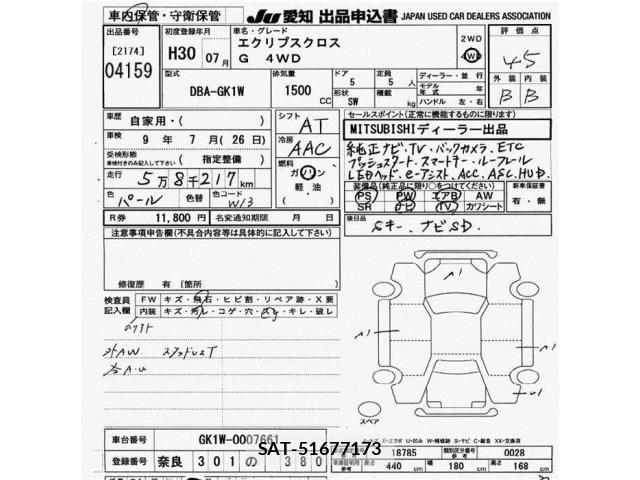 車内保管・守衛保管
JU 愛知 出品申込書 JAPAN USED CAR DEALERS ASSOCIATION
出品番号
[2174]
04159
初度登録年月
H30 07月
車名・グレード
エクリプスクロス
G 4WD
2WD
4WD
評価点
4.5
型式
DBA-GK1W
排気量
1500 CC
ドア
5
定員
5 人
形状
SW
積載
kg
ディーラー・並行
モデル年式 年
ハンドル 左・右
外装 内装
B B
車歴
自家用・( )
車検
9 年 7 月 (26 日)
受検形態
( 指定整備 )
走行 5万8千217km
色 パール
色替
色コード W13
R券 11,800 円
名変通知期限 月 日
シフト
AT
冷房
AAC
燃料
ガソリン
軽・油
( )
セールスポイント(正常に機能するものに限ります)
MITSUBISHIディーラー出品
純正ナビ・TV・バックカメラ・ETC
プッシュスタート・スマートキー・ルーフレール
LEDヘッド・e-アシスト・ACC・ASC・HUD
装備品(純正品に限り○をつけてください)
PS PW エアB AW
SR ナビ TV カワシート
新車保証書
有・無
後日品
Sキー、ナビSD
注意事項申告欄(不具合内容等は具体的に記入して下さい)
修復歴 有〔箇所
検査員記入欄
FW キズ・飛石・ヒビ割・リペア跡・X要
内装 キズ・汚レ・コゲ・穴・スレ・キレ・破レ
外AW. スタッドレスT
スペア
車台番号 GK1W-0007661
登録番号 奈良 301 の 380
SAT-51677173
18785
類別区分番号
参考
0028
長さ 440 cm
幅 180 cm
高さ 168 cm